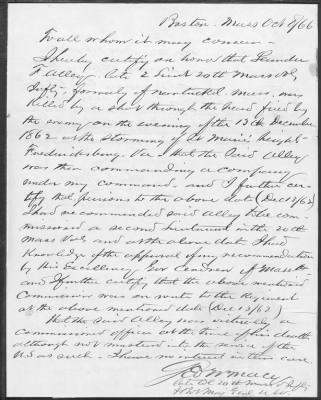 Boston, Mass Oct 8/66
To all whom it may concern –
I hereby certify on honor that Leander
F. Alley, late 2 Lieut 20th Mass Vols
Infty – formerly of Nantucket, Mass, was
killed by a shot through the head fired by
the enemy on the evening of the 13th December
1862 at the storming of St Maries heights
Fredericksburg, Va – that the said Alley
was then commanding a company
under my command, and I further cer-
tify that previous to the above date (Dec 13/62)
I had recommended said Alley to be com-
missioned a second Lieutenant in the 20th
Mass Vols and at the above date I had
knowledge of the approval of my recommendation
by His Excellency Gov Andrew of Mass
and I further certify that the above mentioned
Commission was en route to the Regiment
at the above mentioned date (Dec 13/62)
That the said Alley was virtually a
commissioned officer at the time of his death
although not mustered into the service of the
U.S. as such. I have no interest in this case.
Geo N Macy
late Col 20th Mass Vols Infty
& Bvt Maj Genl U.S.V.